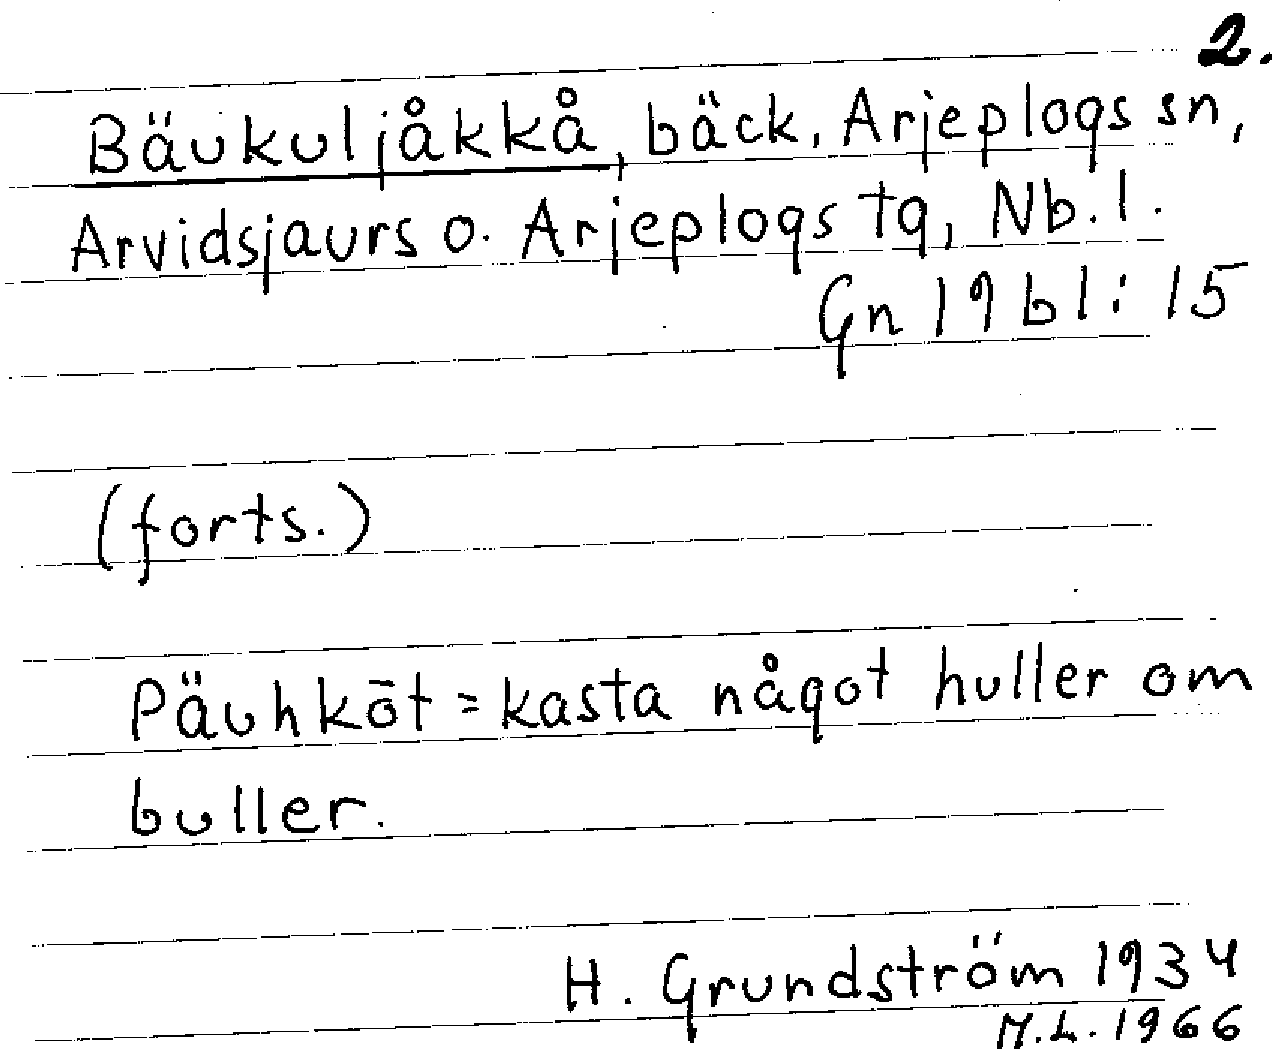 2.
Bäukuljåkkå, bäck, Arjeplogs sn,
Arvidsjaurs o. Arjeplogs tg, Nb.l.
Gn 19 bl: 15
(forts.)
Päuhkōt = kasta något huller om
buller.
H. Grundström 1934
M.L. 1966